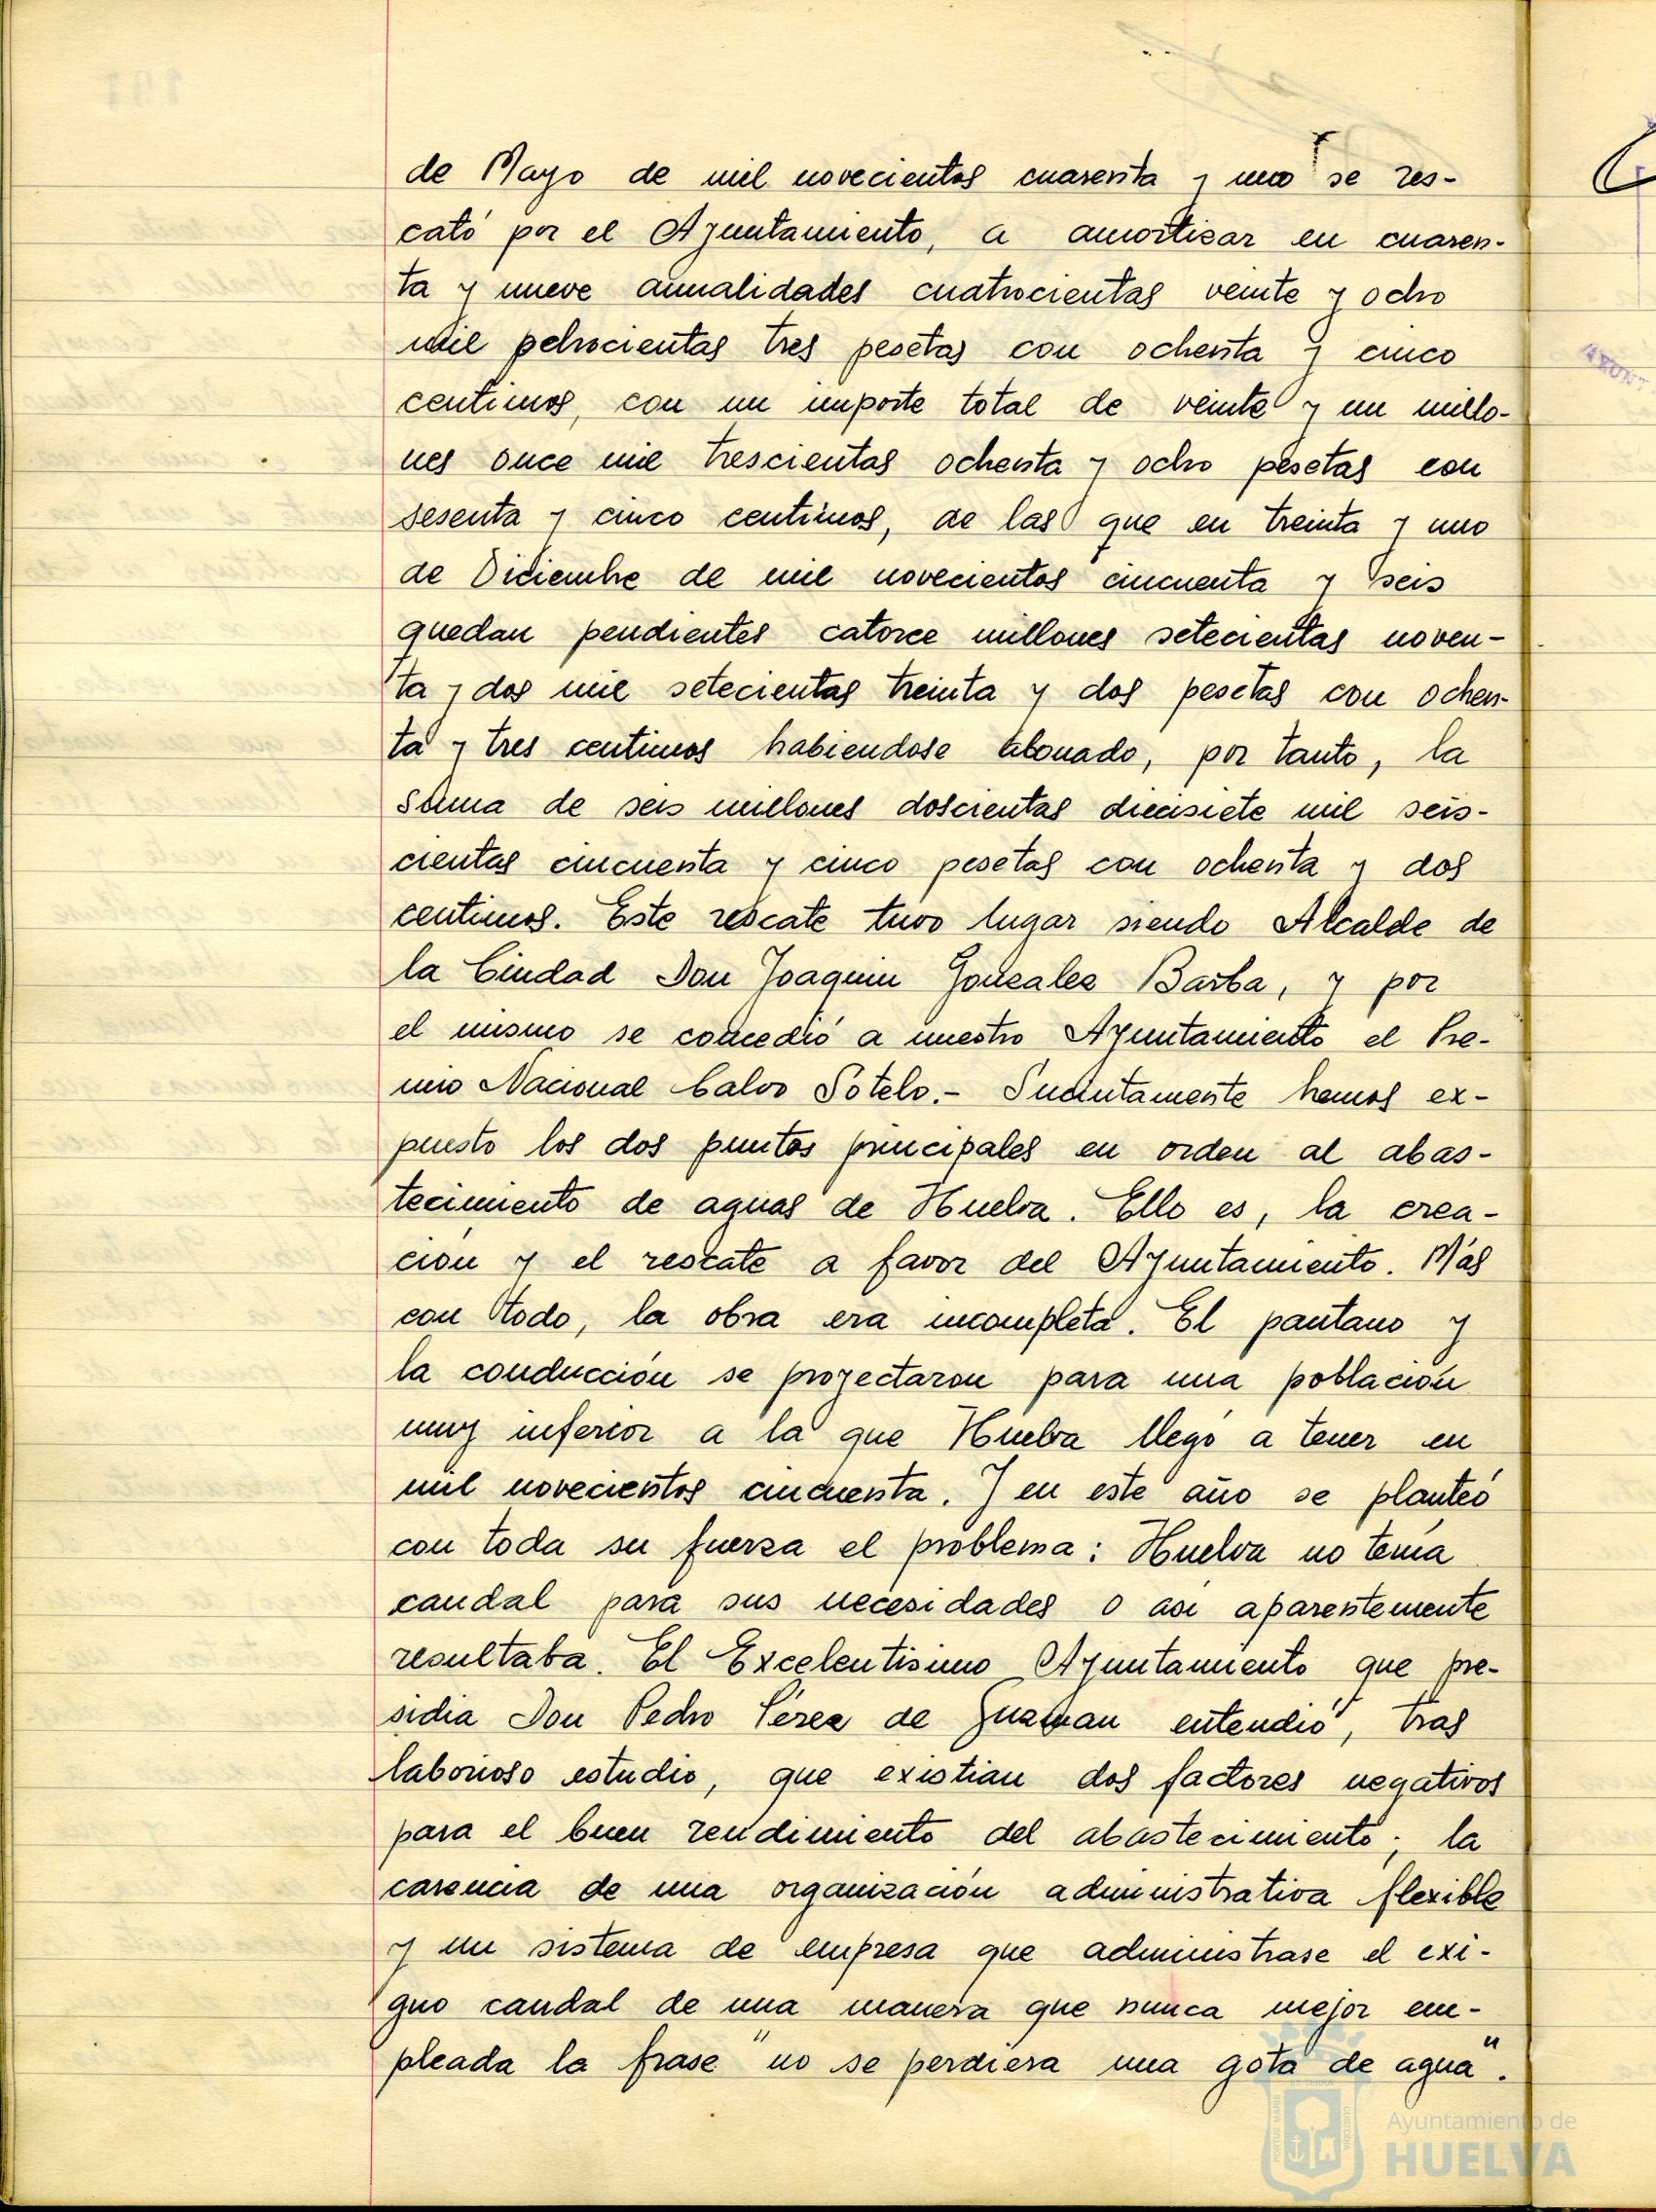 de Mayo de mil novecientos cuarenta y uno se res-
cató por el Ayuntamiento, a amortizar en cuaren-
ta y nueve anualidades cuatrocientas veinte y ocho
mil ochocientas tres pesetas con ochenta y cinco
centimos, con un importe total de veinte y un millo-
nes once mil trescientas ochenta y ocho pesetas con
sesenta y cinco centimos, de las que en treinta y uno
de Diciembre de mil novecientos cincuenta y seis
quedan pendientes catorce millones setecientas noven-
ta y dos mil setecientas treinta y dos pesetas con ochen-
ta y tres centimos habiendose abonado, por tanto, la
suma de seis millones doscientas diecisiete mil seis-
cientas cincuenta y cinco pesetas con ochenta y dos
centimos. Este rescate tuvo lugar siendo Alcalde de
la Ciudad Don Joaquin Gonzalez Barba, y por
el mismo se concedió a nuestro Ayuntamiento el Pre-
mio Nacional Calvo Sotelo.- Sucintamente hemos ex-
puesto los dos puntos principales en orden al abas-
tecimiento de aguas de Huelva. Ello es, la crea-
ción y el rescate a favor del Ayuntamiento. Más
con todo, la obra era incompleta. El pantano y
la conducción se proyectaron para una población
muy inferior a la que Huelva llegó a tener en
mil novecientos cincuenta. Y en este año se planteó
con toda su fuerza el problema: Huelva no tenía
caudal para sus necesidades o asi aparentemente
resultaba. El Excelentisimo Ayuntamiento que pre-
sidia Don Pedro Pérez de Guzman entendió, tras
laborioso estudio, que existian dos factores negativos
para el buen rendimiento del abastecimiento; la
carencia de una organización administrativa flexible
y un sistema de empresa que administrase el exi-
guo caudal de una manera que nunca mejor em-
pleada la frase "no se perdiera una gota de agua".
Ayuntamiento de
HUELVA